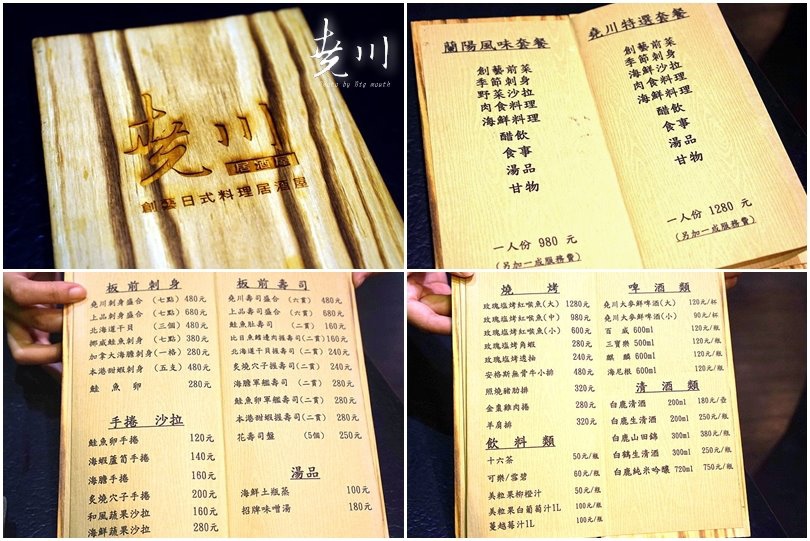 堯川
Photo by Big mouth
堯川
居酒屋
創藝日式料理居酒屋
蘭陽風味套餐
創藝前菜
季節刺身
野菜沙拉
肉食料理
海鮮料理
醋飲
食事
湯品
甘物
一人份 980 元
(另加一成服務費)
堯川特選套餐
創藝前菜
季節刺身
海鮮沙拉
肉食料理
海鮮料理
醋飲
食事
湯品
甘物
一人份 1280 元
(另加一成服務費)
板前刺身
堯川刺身盛合 (七點) 480元
上品刺身盛合 (七點) 680元
北海道干貝 (三個) 480元
挪威鮭魚刺身 (七點) 380元
加拿大海膽刺身(一格) 280元
本港甜蝦刺身 (五支) 480元
鮭魚卵 280元
手捲 沙拉
鮭魚卵手捲 120元
海蝦蘆筍手捲 140元
海膽手捲 160元
炙燒穴子手捲 200元
和風蔬果沙拉 160元
海鮮蔬果沙拉 280元
板前壽司
堯川壽司盛合 (六貫) 480元
上品壽司盛合 (六貫) 680元
鮭魚肚壽司 (二貫) 160元
比目魚鰭邊肉握壽司(二貫)160元
北海道干貝握壽司(二貫) 240元
炙燒穴子握壽司(二貫) 240元
海膽軍艦壽司 (二貫) 280元
鮭魚卵軍艦壽司(二貫) 280元
本港甜蝦握壽司(二貫) 280元
花壽司盤 (5個) 250元
湯品
海鮮土瓶蒸 100元
招牌味噌湯 180元
燒烤
玫瑰塩烤紅喉魚(大) 1280元
玫瑰塩烤紅喉魚(中) 980元
玫瑰塩烤紅喉魚(小) 600元
玫瑰塩烤角蝦 280元
玫瑰塩烤透抽 240元
安格斯無骨牛小排 480元
照燒豬肋排 320元
金棗雞肉捲 280元
羊肩排 320元
飲料類
十六茶 50元/瓶
可樂/雪碧 60元/瓶
美粒果柳橙汁 50元/瓶
美粒果白葡萄汁1L 100元/瓶
蔓越莓汁1L 100元/瓶
啤酒類
堯川大麥鮮啤酒(大) 120元/杯
堯川大麥鮮啤酒(小) 90元/杯
百威 600ml 120元/瓶
三寶樂 500ml 120元/瓶
麒麟 600ml 120元/瓶
海尼根 600ml 120元/瓶
清酒類
白鹿清酒 200ml 180元/壺
白鹿生清酒 200ml 250元/瓶
白鹿山田錦 300ml 380元/瓶
白鶴生清酒 300ml 250元/瓶
白鹿純米吟釀 720ml 750元/瓶